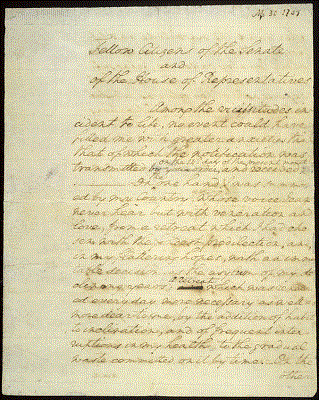 Ap. 30. 1789
Fellow Citizens of the Senate
and
of the House of Representatives
Among the vicissitudes in
cident to life, no event could have
filled me with greater anxieties than
that of which the notification was
transmitted by your order, and received on
the 14th day of the present month.
On the one hand, I was summon
ed by my Country, whose voice I can
never hear but with veneration and
love, from a retreat which I had cho
sen with the fondest predilection, and,
in my flattering hopes, with an immu
table decision, as the asylum of my de
clining years: a retreat which was rende
red every day more necessary as well as
more dear to me, by the addition of habit
to inclination, and of frequent inter
ruptions in my health to the gradual
waste committed on it by time. On the
other